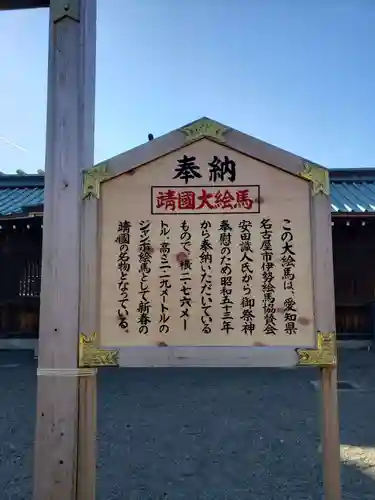 奉納
靖國大絵馬
この大絵馬は、愛知県
名古屋市伊勢絵馬協賛会
安田識人氏から御祭神
奉慰のため昭和五十三年
から奉納いただいている
もので、横二・七六メー
トル、高三・二九メートルの
ジャンボ絵馬として新春の
靖國の名物となっている。